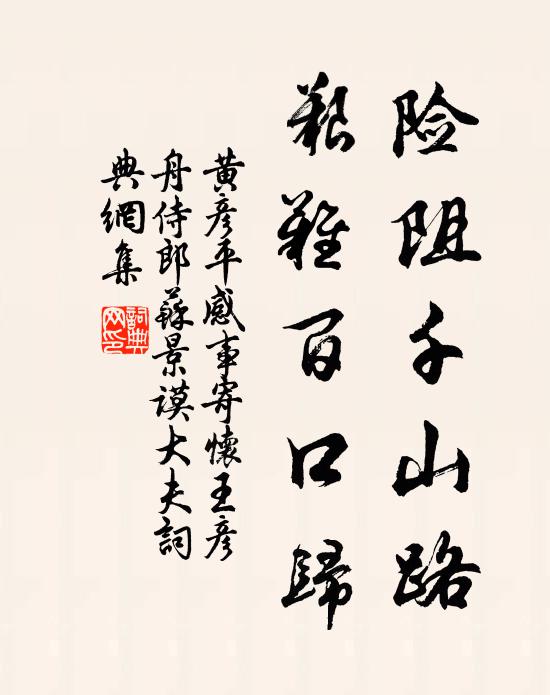 险阻千山路
艰难百口歸
黄彦平感事寄懷王彦
舟侍郎蘇景謨大夫詞
典網集
詞典网印